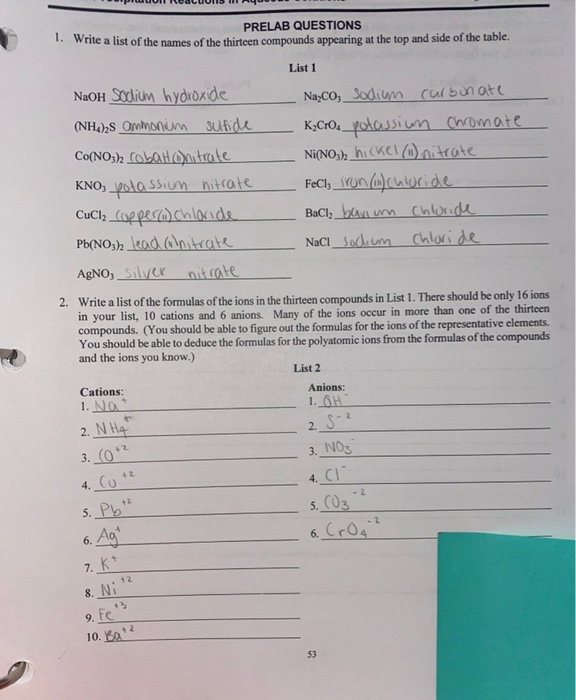 PRELAB QUESTIONS
1. Write a list of the names of the thirteen compounds appearing at the top and side of the table.
List 1
NaOH Sodium hydroxide Na₂CO₃ sodium carbonate
(NH₄)₂S ammonium sulfide K₂CrO₄ potassium chromate
Co(NO₃)₂ cobalt(II)nitrate Ni(NO₃)₂ nickel(II)nitrate
KNO₃ potassium nitrate FeCl₃ iron(III)chloride
CuCl₂ copper(II)chloride BaCl₂ barium chloride
Pb(NO₃)₂ lead(II)nitrate NaCl sodium chloride
AgNO₃ silver nitrate
2. Write a list of the formulas of the ions in the thirteen compounds in List 1. There should be only 16 ions
in your list, 10 cations and 6 anions. Many of the ions occur in more than one of the thirteen
compounds. (You should be able to figure out the formulas for the ions of the representative elements.
You should be able to deduce the formulas for the polyatomic ions from the formulas of the compounds
and the ions you know.)
List 2
Cations: Anions:
1. Na⁺ 1. OH⁻
2. NH₄⁺ 2. S⁻²
3. CO⁺² 3. NO₃⁻
4. Cu⁺² 4. Cl⁻
5. Pb⁺² 5. CO₃⁻²
6. Ag⁺ 6. CrO₄⁻²
7. K⁺
8. Ni⁺²
9. Fe⁺³
10. Ba⁺²
53